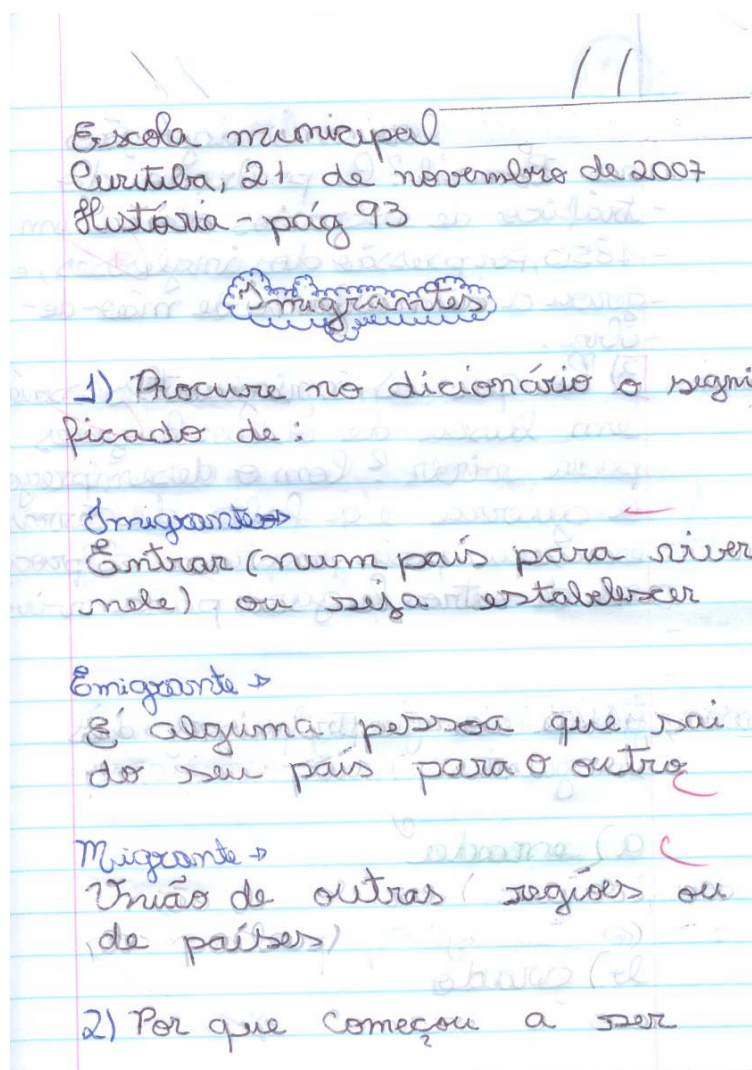 Escola municipal
Curitiba, 21 de novembro de 2007
História - pág 93
Imigrantes
1) Procure no dicionário o signi
ficado de :
Imigrante→
Entrar (num país para viver
nele) ou seja estabelescer
Emigrante→
É alguma pessoa que sai
do seu país para o outro
Migrante→
União de outras ( regiões ou
de países)
2) Por que começou a ser